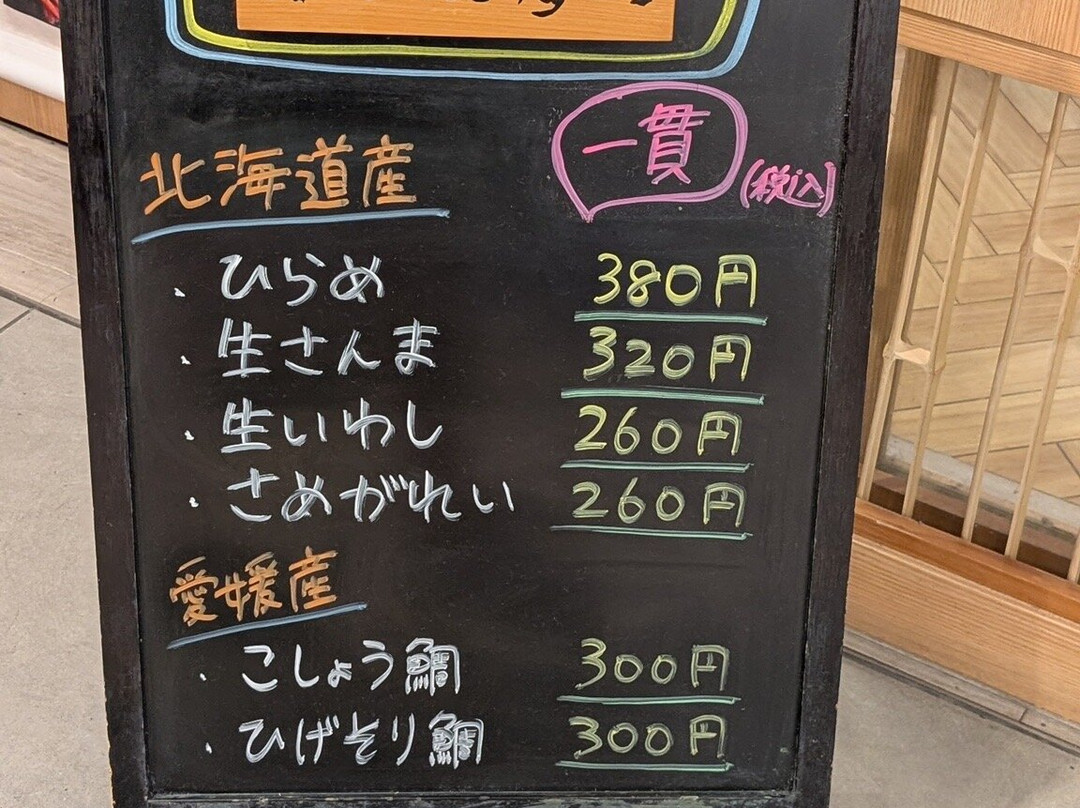 一貫
(税込)
北海道産
・ひらめ 380円
・生さんま 320円
・生いわし 260円
・さめがれい 260円
愛媛産
・こしょう鯛 300円
・ひげそり鯛 300円